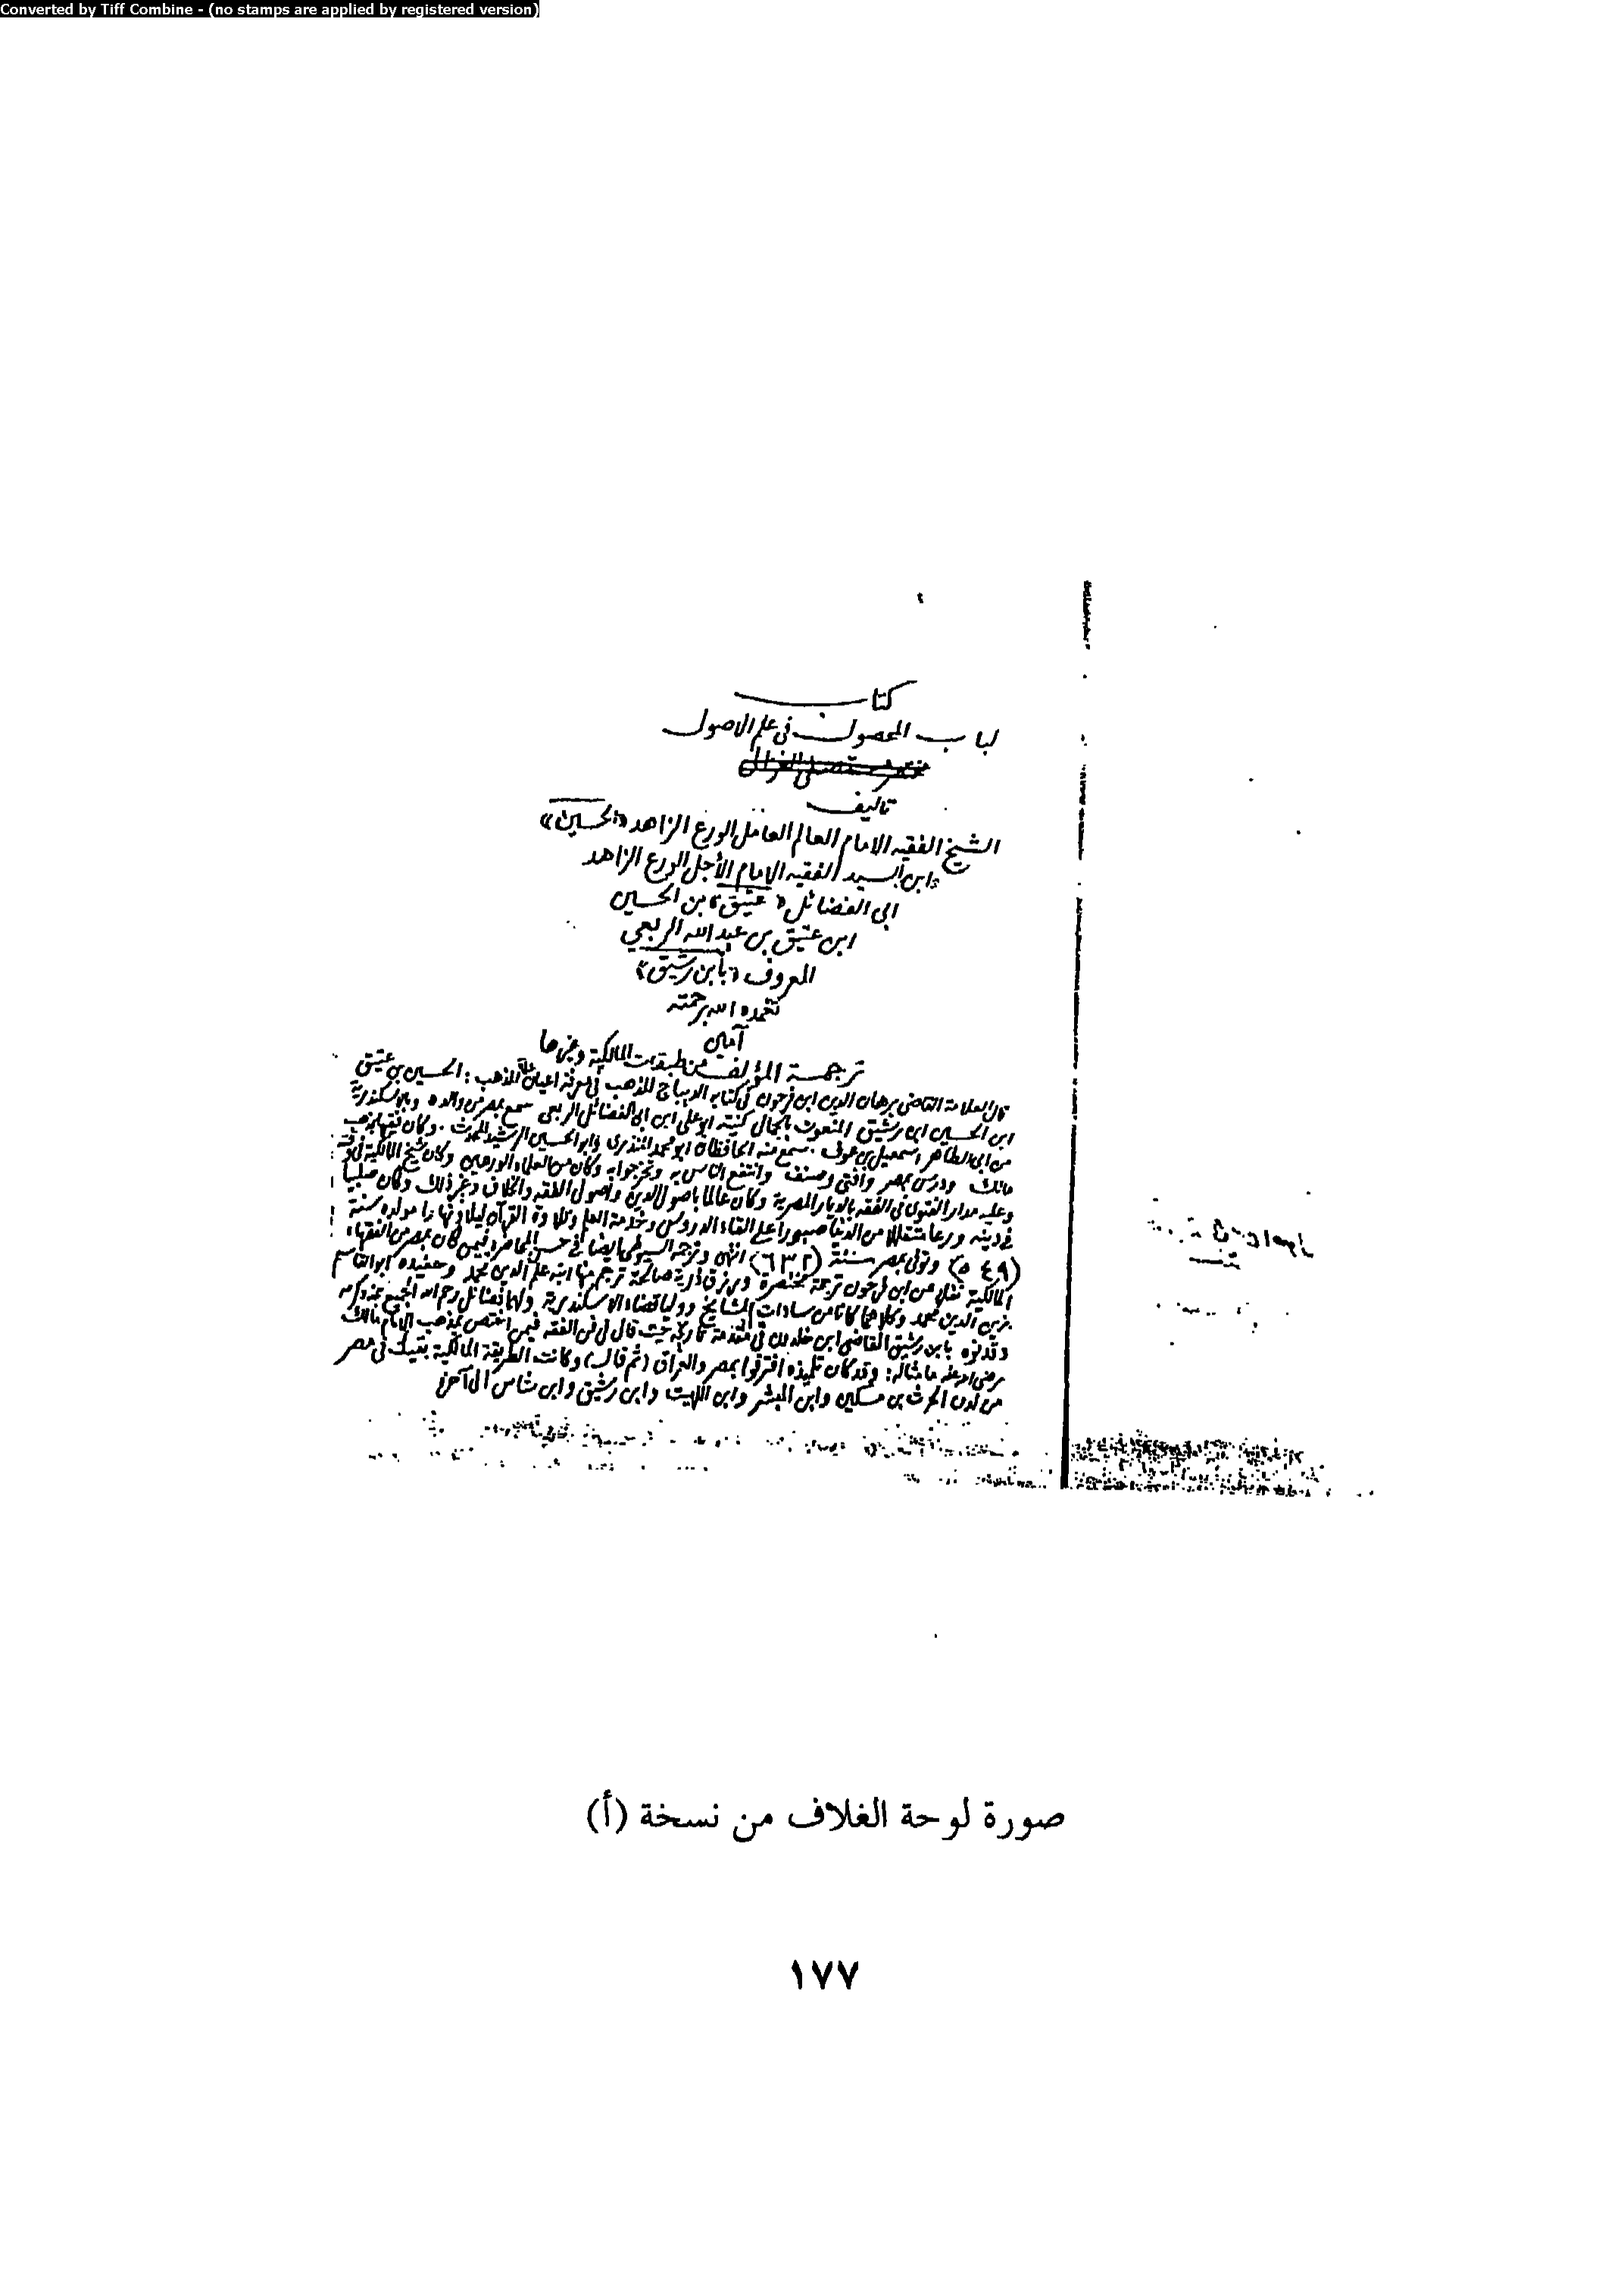 Converted by Tiff Combine - (no stamps are applied by registered version)
كتاب
لباب المحصول في علم الاصول
مختصر مستصفى الغزالي
تاليف
الشيخ الفقيه الامام العالم العامل الورع الزاهد «الحسين»
«ابن السيد الفقيه الامام الأجل الورع الزاهد
ابي الفضائل «عتيق» بن الحسين
ابن عتيق بن عبد الله الربعي
المعروف «بابن رشيق»
تغمده الله برحمته
آمين
ترجمة المؤلف من طبقات المالكية وغيرها
قال العلامة القاضي برهان الدين ابن فرحون في كتابه الديباج المذهب في معرفة اعيان علماء المذهب: الحسين بن عتيق
ابن الحسين ابن رشيق المنعوت بالجمال كنيته ابو علي ابن ابي الفضائل الربعي سمع بمصر من والده وبالاسكندرية
من ابي الطاهر اسمعيل بن عوف. سمع منه الحافظان ابو محمد المنذري وابو الحسين الرشيد. وكان فقيها بمذهب
مالك ودرس بمصر وافتى وصنف وانتفع الناس به وتخرجوا به وكان من العلماء الورعين وكان شيخ المالكية في وقته
وعليه مدار الفتوى في الفقه بالديار المصرية وكان عالما باصول الدين واصول الفقه والخلاف وغير ذلك وكان صليبا
في دينه ورعا متقللا من الدنيا صبورا على القاء الدروس وخدمة العلم وتلاوة القرآن ليلا ونهارا مولده سنة
(٥٤٩) وتوفي بمصر سنة (٦٣٢) انتهى وترجمه السيوطي ايضا في حسن المحاضرة فيمن كان بمصر من الفقهاء
المالكية نقلا عن ابن فرحون ترجمة مختصرة ورزق ذرية صالحة ترجم منها ابنه علم الدين محمد وحفيده ابو القاسم
زين الدين محمد وكلاهما كانا من سادات المشايخ ووليا قضاء الاسكندرية ولهما فضائل رحم الله الجميع
وقد نوه بابن رشيق القاضي ابن خلدون في مقدمة تاريخه حيث قال في فن الفقه فيمن اختص بمذهب الامام مالك
رضي الله عنه ما مثاله: وقد كان تلميذه افترقوا بمصر والعراق (ثم قال) وكانت الطريقة المالكية بقيت في مصر
من لدن الحرث بن مسكين وابن المبشر وابن اللهيت وابن رشيق وابن شاس الى آخره
صورة لوحة الغلاف من نسخة (أ)
١٧٧